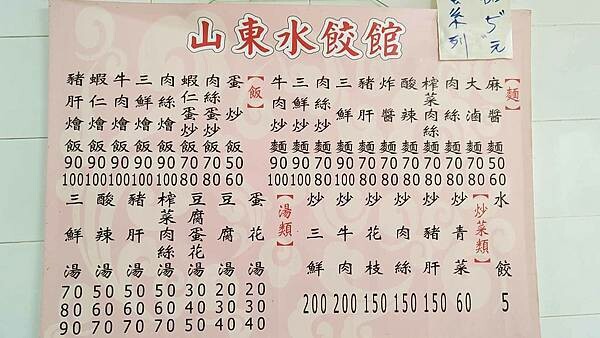 山東水餃館
系列
元
【麵】
麻醬麵 50 60
大滷麵 70 80
肉絲麵 70 80
榨菜肉絲麵 70 80
酸辣麵 70 80
炸醬麵 70 80
豬肝麵 70 80
三鮮麵 80 100
肉絲炒麵 70 80
三鮮炒麵 90 100
牛肉炒麵 90 100
【飯】
蛋炒飯 50 60
肉絲蛋炒飯 70 80
蝦仁蛋炒飯 70 80
三鮮燴飯 90 100
牛肉燴飯 90 100
蝦仁燴飯 90 100
豬肝燴飯 90 100
水餃 5
【炒菜類】
炒青菜 60
炒豬肝 150
炒肉絲 150
炒花枝 150
炒牛肉 200
炒三鮮 200
【湯類】
蛋花湯 20 30 40
豆腐湯 20 30 40
豆腐蛋花湯 30 40 50
榨菜肉絲湯 50 60 70
豬肝湯 50 60 70
酸辣湯 50 60 70
三鮮湯 70 80 90